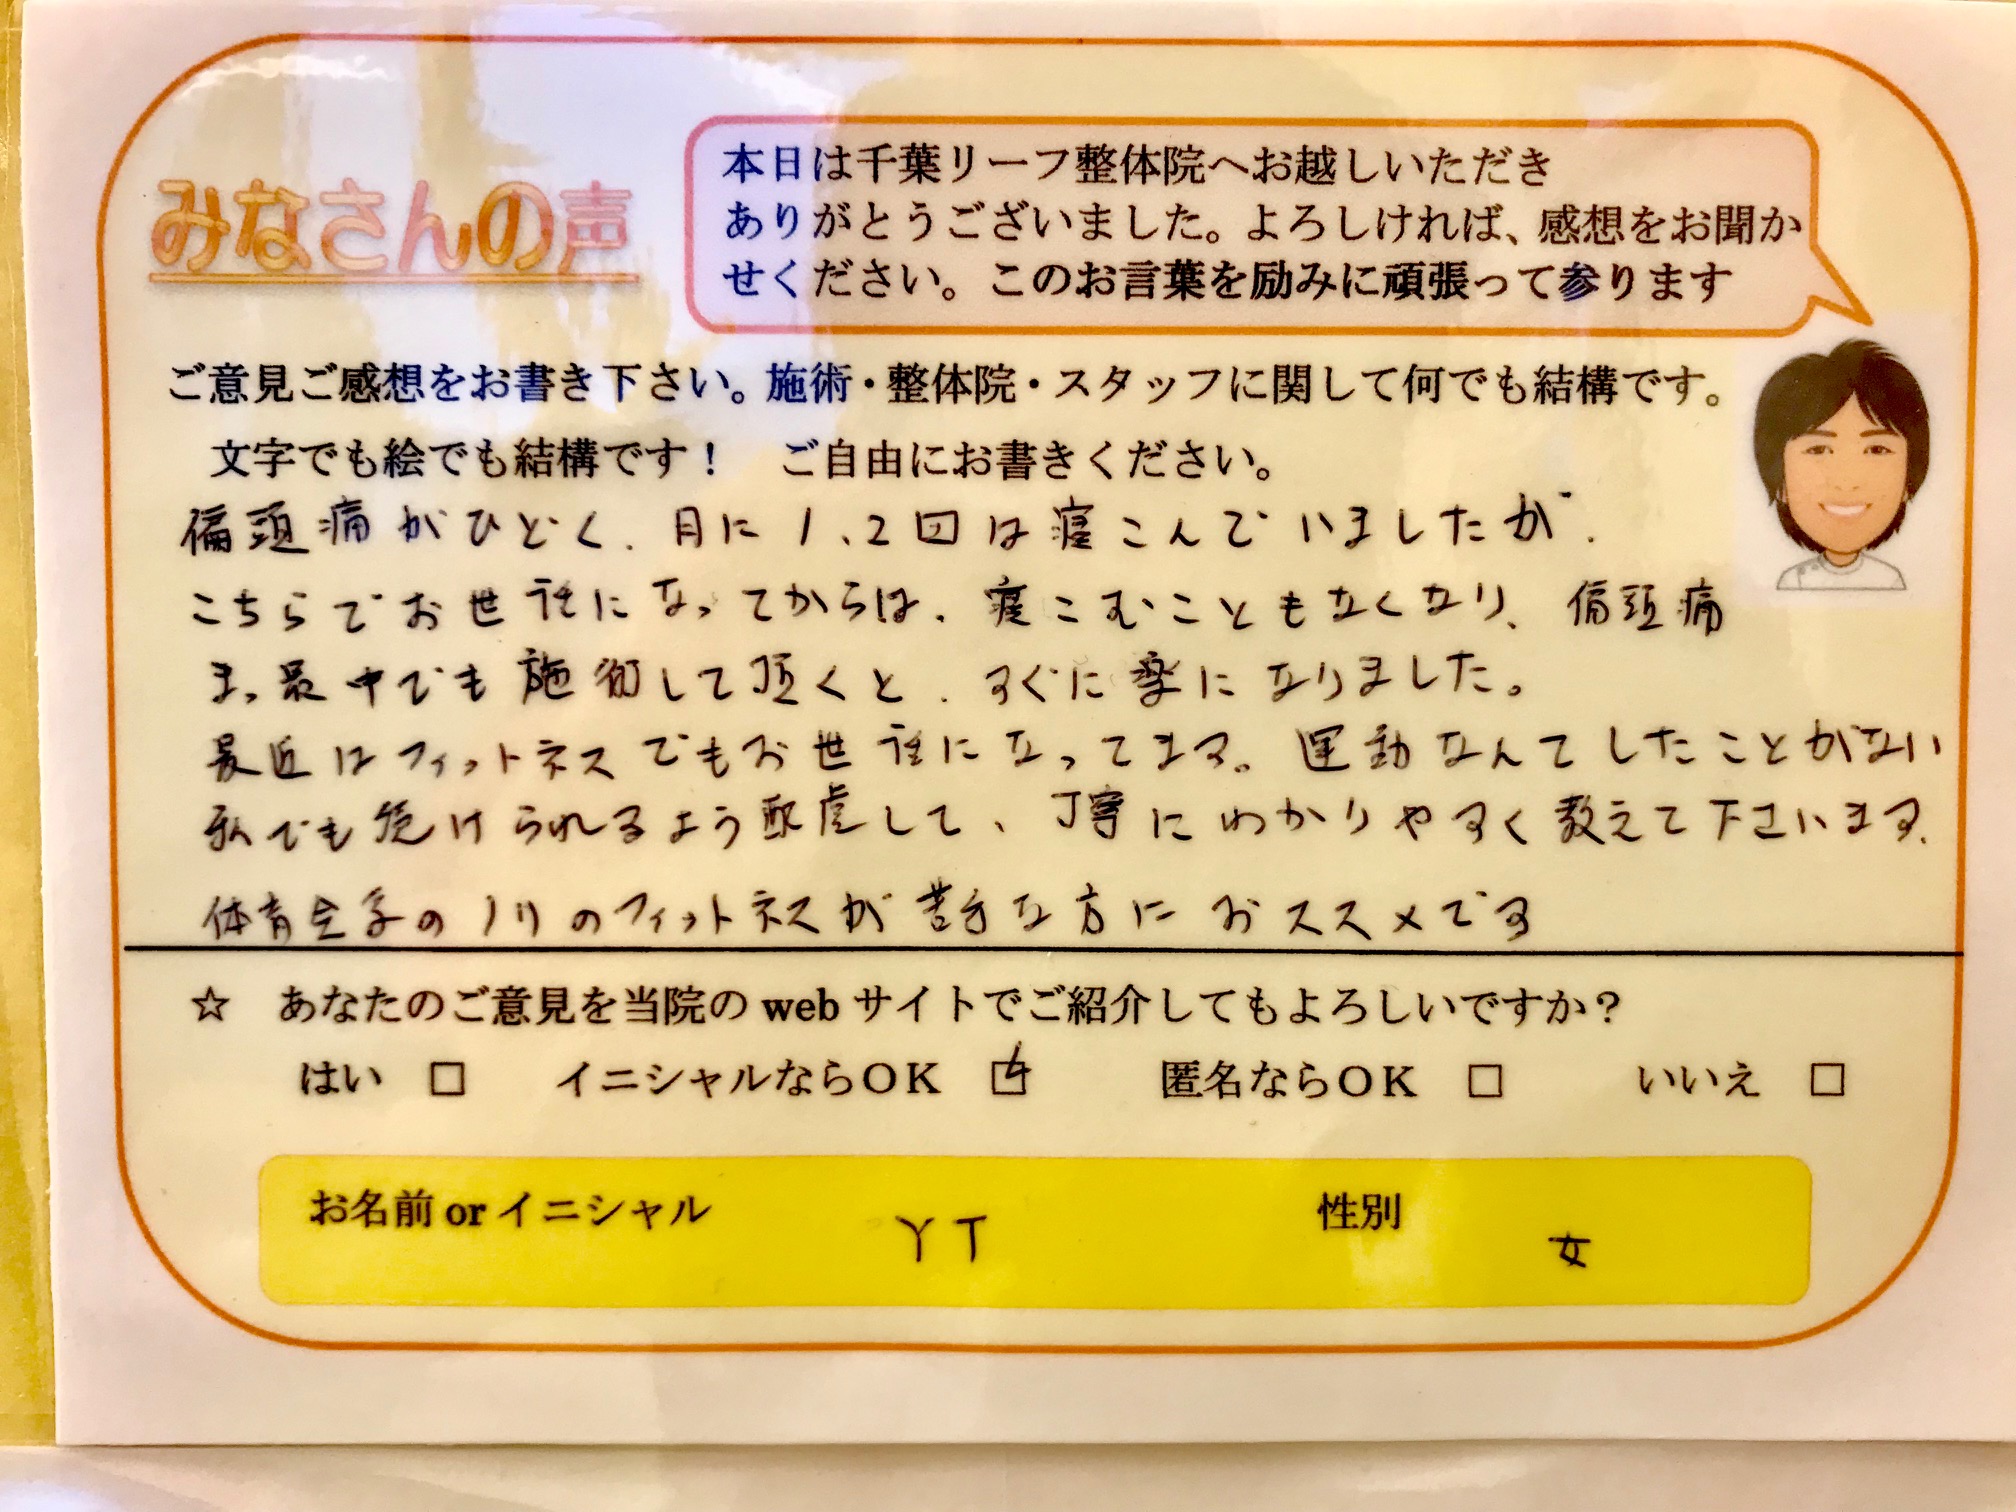 みなさんの声
本日は千葉リーフ整体院へお越しいただき
ありがとうございました。よろしければ、感想をお聞か
せください。このお言葉を励みに頑張って参ります
ご意見ご感想をお書き下さい。施術・整体院・スタッフに関して何でも結構です。
文字でも絵でも結構です！　ご自由にお書きください。
偏頭痛がひどく、月に1、2回は寝こんでいましたが、
こちらでお世話になってからは、寝こむこともなくなり、偏頭痛
まっ最中でも施術して頂くと、すぐに楽になりました。
最近はフィットネスでもお世話になってます。運動なんてしたことがない
私でも続けられるよう配慮して、丁寧にわかりやすく教えて下さいます。
体育会系のノリのフィットネスが苦手な方におススメです
☆　あなたのご意見を当院のwebサイトでご紹介してもよろしいですか？
はい　□　イニシャルならOK　☑　匿名ならOK　□　いいえ　□
お名前orイニシャル　YT　性別　女